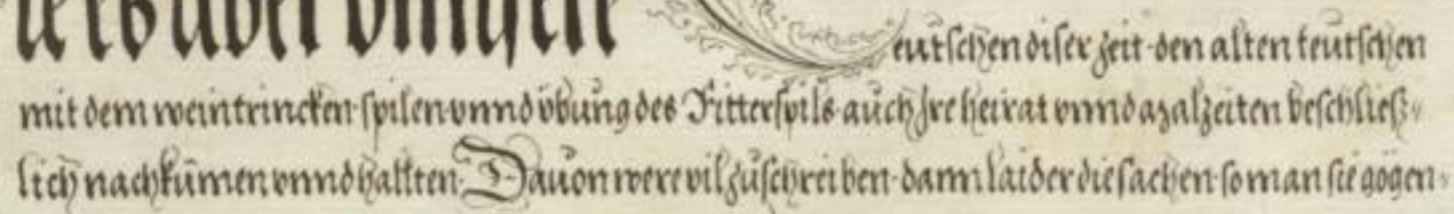 eutschen diser zeit den alten teutschen
mit dem weintrincken spilen vnnd vbung des Ritterspils auch Jre heirat vnnd azalzeiten beschließ-
lich nachkumen vnnd hallten. Dauon were vil zuschreiben dann laider die sachen so man sie gögen-